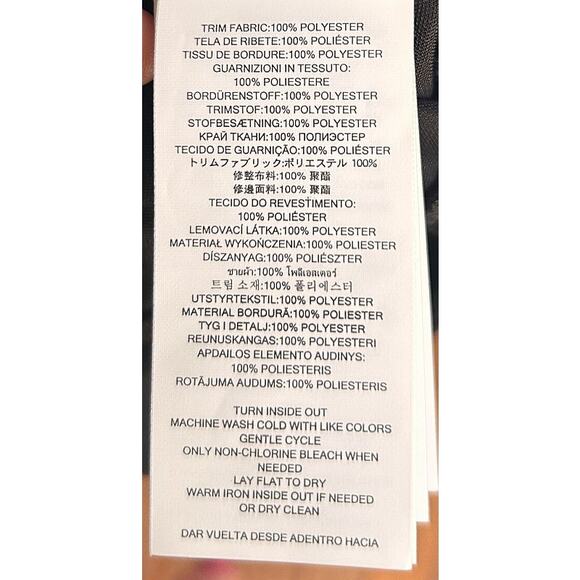 TRIM FABRIC:100% POLYESTER
TELA DE RIBETE:100% POLIÉSTER
TISSU DE BORDURE:100% POLYESTER
GUARNIZIONI IN TESSUTO:
100% POLIESTERE
BORDÜRENSTOFF:100% POLYESTER
TRIMSTOF:100% POLYESTER
STOFBESÆTNING:100% POLYESTER
КРАЙ ТКАНИ:100% ПОЛИЭСТЕР
TECIDO DE GUARNIÇÃO:100% POLIÉSTER
トリムファブリック:ポリエステル 100%
修整布料:100% 聚酯
修邊面料:100% 聚酯
TECIDO DO REVESTIMENTO:
100% POLIÉSTER
LEMOVACÍ LÁTKA:100% POLYESTER
MATERIAŁ WYKOŃCZENIA:100% POLYESTER
DÍSZANYAG:100% POLIÉSZTER
ชายผ้า:100% โพลีเอสเตอร์
트림 소재:100% 폴리에스터
UTSTYRTEKSTIL:100% POLYESTER
MATERIAL BORDURĂ:100% POLIESTER
TYG I DETALJ:100% POLYESTER
REUNUSKANGAS:100% POLYESTERI
APDAILOS ELEMENTO AUDINYS:
100% POLIESTERIS
ROTĀJUMA AUDUMS:100% POLIESTERIS
TURN INSIDE OUT
MACHINE WASH COLD WITH LIKE COLORS
GENTLE CYCLE
ONLY NON-CHLORINE BLEACH WHEN
NEEDED
LAY FLAT TO DRY
WARM IRON INSIDE OUT IF NEEDED
OR DRY CLEAN
DAR VUELTA DESDE ADENTRO HACIA